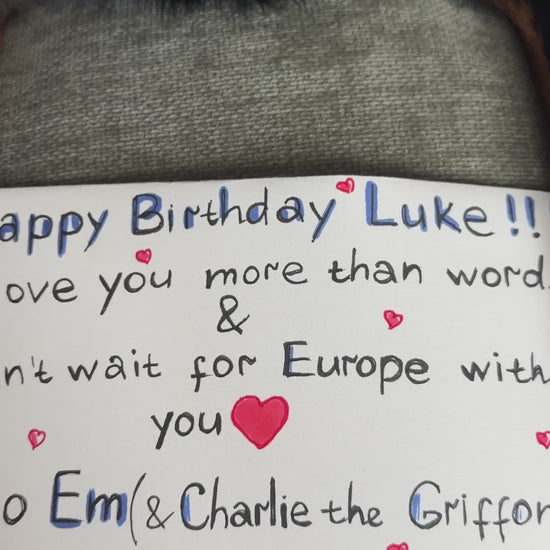 appy Birthday Luke!!
ove you more than word
&
n't wait for Europe with
you
o Em (& Charlie the Griffon